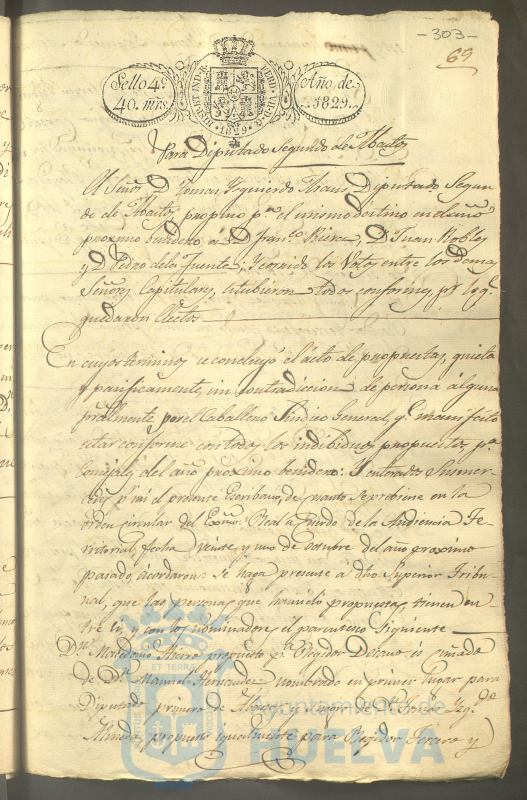 -303-
69
Sello 4º
40. mrs.
Año de
1829.
1829
Para Diputado Segundo de Abastos
Al Señor D. Tomas Yzquierdo Diputado Segun
do de Abastos, propuso pª el mismo destino en el año
proximo benidero, á D. Franco Riera, D. Juan Robles
y D. Pedro de la Fuente; y corrido los Votos entre los demas
Señores Capitulares, estubieron todos conformes, pr lo q.
quedaron electos
En cuyos terminos se concluyó el acto de propuestas, quieta
y pacificamente, sin contradiccion de persona alguna
por el Caballero Sindico General, q. manifestó
estar conforme con todos los individuos propuestos, pª
Concejales del año proximo benidero: Y enterados Susmer
cedes pr mi el presente Escribano, de quanto se previene en la
orden circular del Real Acuerdo de la Audiencia Te
rritorial, fecha veinte y uno de octubre del año proximo
pasado, acordaron: Se haga presente á dho Superior Tribu
nal, que las personas que han sido propuestas, tienen en
tre si, y con los nominadores el parentesco siguiente
Dn. propuesto pª Regidor Decano es cuñado
de Dn. Manuel Hernandez nombrado en primer lugar para
Diputado primero de Abastos, y
propuesto igualmente para Regidor Tercero y
Ayuntamiento de
HUELVA